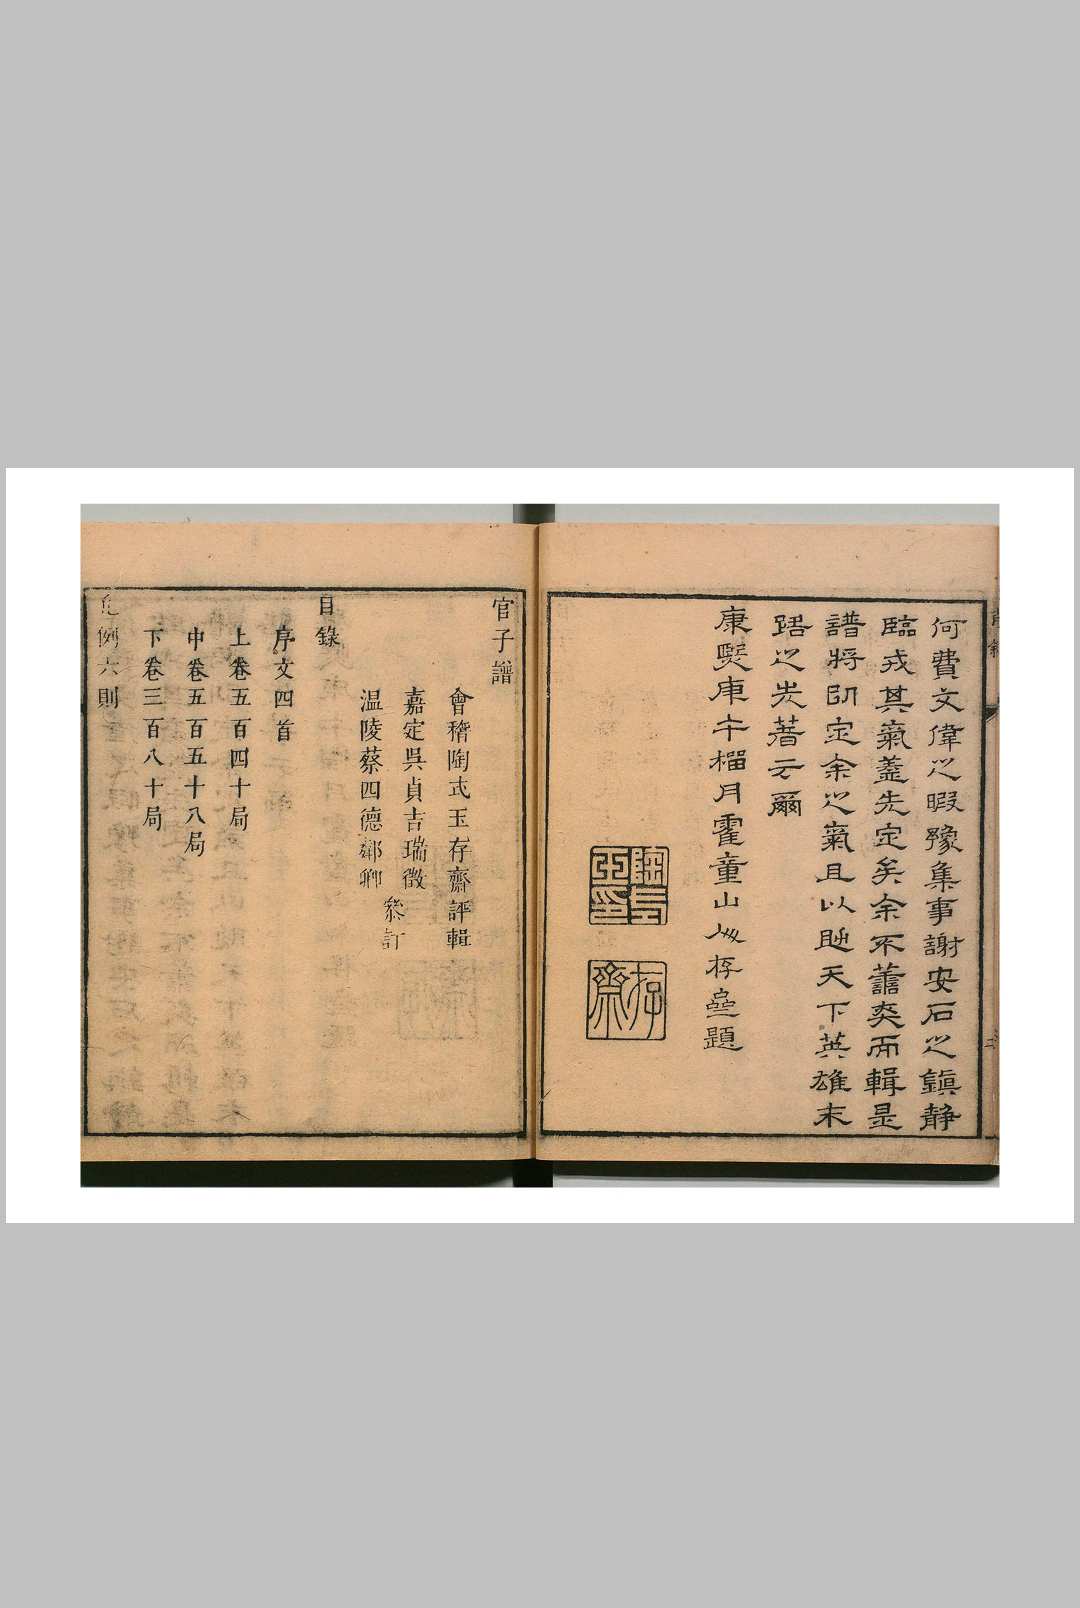 何費文偉之暇豫集事謝安石之鎮静
臨戎其氣蓋先定矣余不蕭奕而輯是
譜將即定余之氣且以眎天下英雄末
路之先著云爾
康熙庚午榴月霍童山人存齋題
存齋
官子譜
會稽陶式玉存齋評輯
嘉定吳貞吉瑞徵
溫陵蔡四德鄰卿
叅訂
目錄
序文四首
上卷五百四十局
中卷五百五十八局
下卷三百八十局
凡例六則